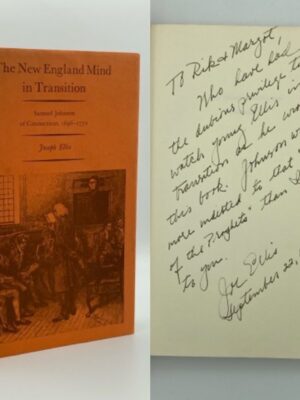 The New England Mind
in Transition
Samuel Johnson
of Connecticut, 1696–1772
Joseph Ellis
To Rik & Margot,
Who have had
the dubious privilege to
watch young Ellis in
transition as he wro
this book. Johnson w
more indebted to that
of the Prophets than
to you.
Joe Ellis
September 22,